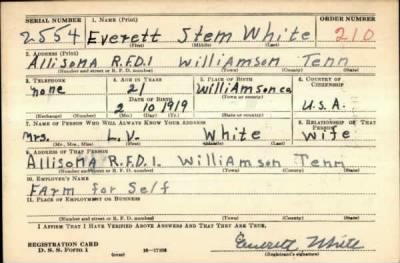 SERIAL NUMBER 1. NAME (Print) ORDER NUMBER
2554 Everett Stem White 210
(First) (Middle) (Last)
2. ADDRESS (Print)
Allisona R.F.D.1 Williamson Tenn
(Number and street or R. F. D. number) (Town) (County) (State)
3. TELEPHONE 4. AGE IN YEARS 5. PLACE OF BIRTH 6. COUNTRY OF CITIZENSHIP
none 21 Williamson co
DATE OF BIRTH (Town or county)
2 10 1919 U.S.A.
(Exchange) (Number) (Mo.) (Day) (Yr.) (State or country)
7. NAME OF PERSON WHO WILL ALWAYS KNOW YOUR ADDRESS 8. RELATIONSHIP OF THAT PERSON
Mrs. L.V. White Wife
(Mr., Mrs., Miss) (First) (Middle) (Last)
9. ADDRESS OF THAT PERSON
Allisona R.F.D.1. Williamson Tenn
(Number and street or R. F. D. number) (Town) (County) (State)
10. EMPLOYER'S NAME
Farm for Self
11. PLACE OF EMPLOYMENT OR BUSINESS
(Number and street or R. F. D. number) (Town) (County) (State)
I AFFIRM THAT I HAVE VERIFIED ABOVE ANSWERS AND THAT THEY ARE TRUE.
REGISTRATION CARD Everett White
D. S. S. Form 1 (over) (Registrant's signature)